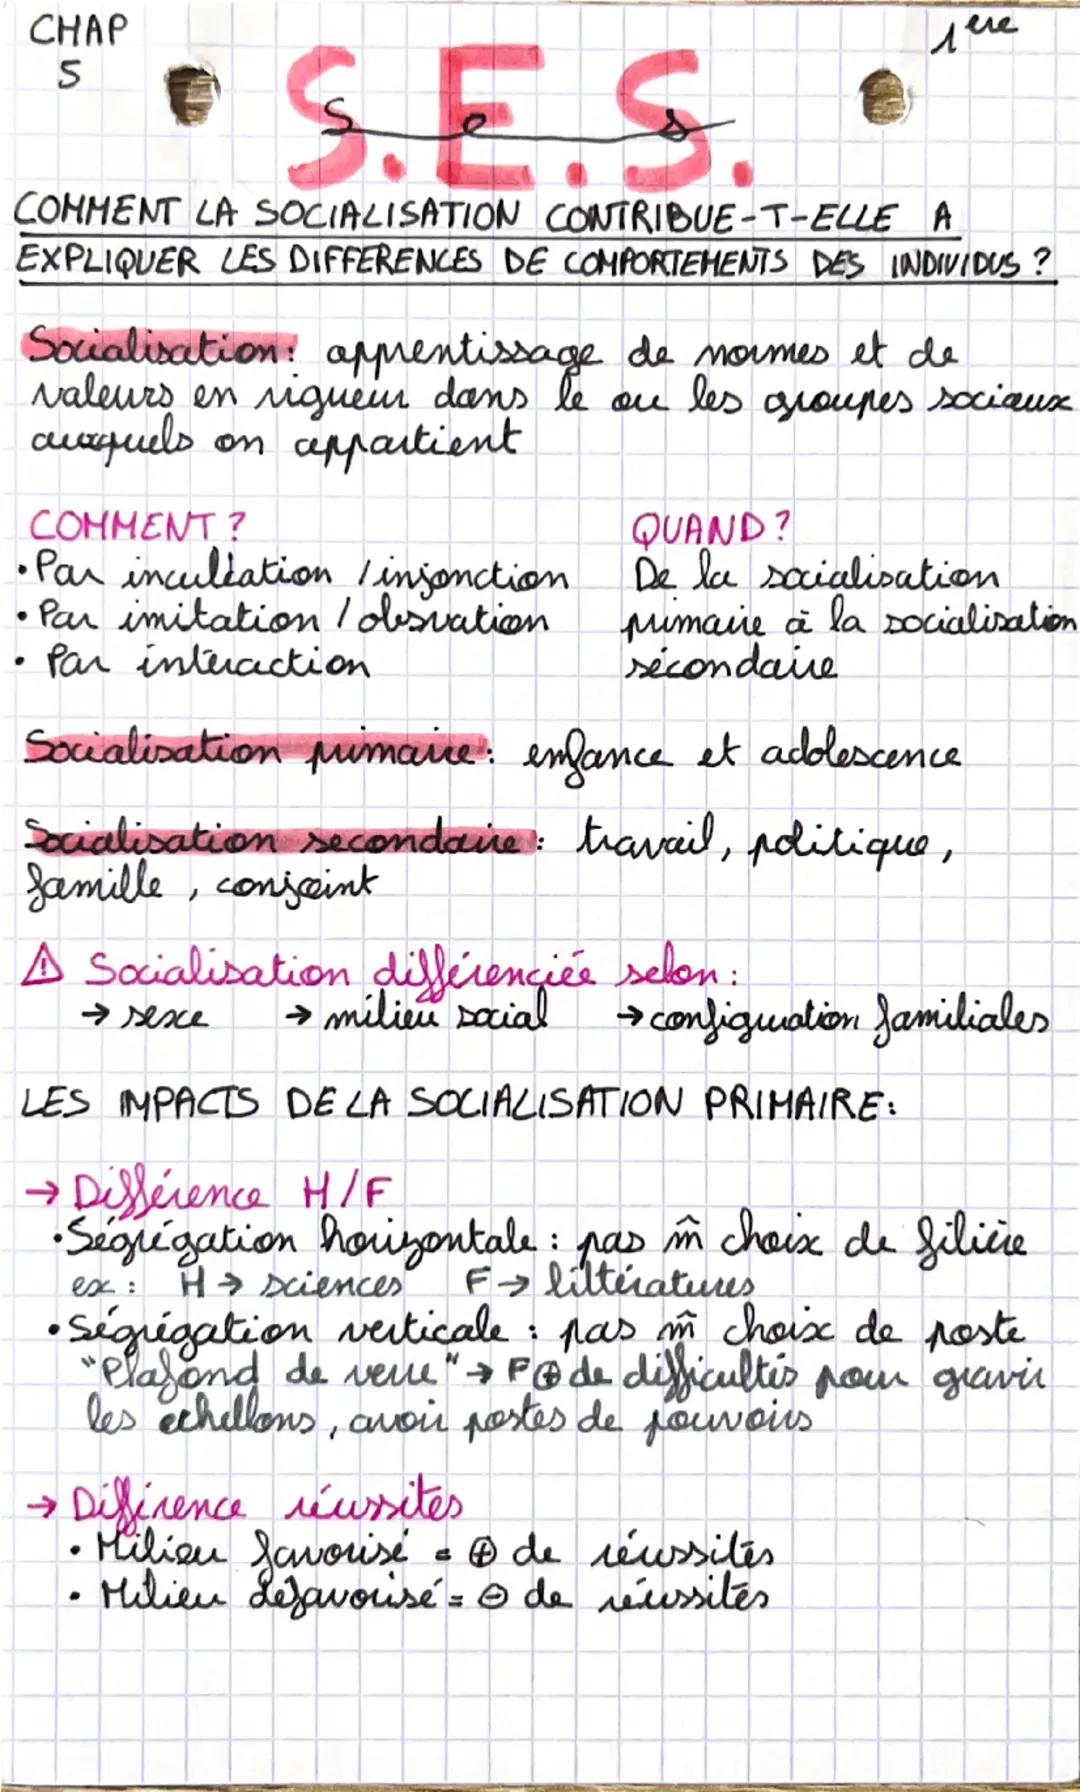 CHAP
5
1ère
S.E.S.
Ses
COMMENT LA SOCIALISATION CONTRIBUE-T-ELLE A
EXPLIQUER LES DIFFERENCES DE COMPORTEMENTS DES INDIVIDUS ?
Socialisation: apprentissage de normes et de
valeurs en rigueur dans le ou les groupes sociaux
auxquels on appartient
COMMENT ?
• Par inculcation / injonction
• Par imitation / obsrvation
• Par interaction
QUAND ?
De la socialisation
primaire à la socialisation
sécondaire
Socialisation primaire : enfance et adolescence
Socialisation secondaire : travail, politique,
famille, conjoint
⚠ Socialisation différenciée selon :
→ sexe → milieu social → configuration familiales
LES IMPACTS DE LA SOCIALISATION PRIMAIRE :
→ Différence H/F
• Ségrégation horizontale : pas m̂ choix de filière
ex : H → sciences F → littératures
• Ségrégation verticale : pas m̂ choix de poste
"Plafond de verre" → F ⊕ de difficultés pour gravir
les echellons, avoir postes de pouvoirs
→ Différence réussites
• Milieu favorisé = ⊕ de réussites
• Milieu défavorisé = ⊖ de réussités